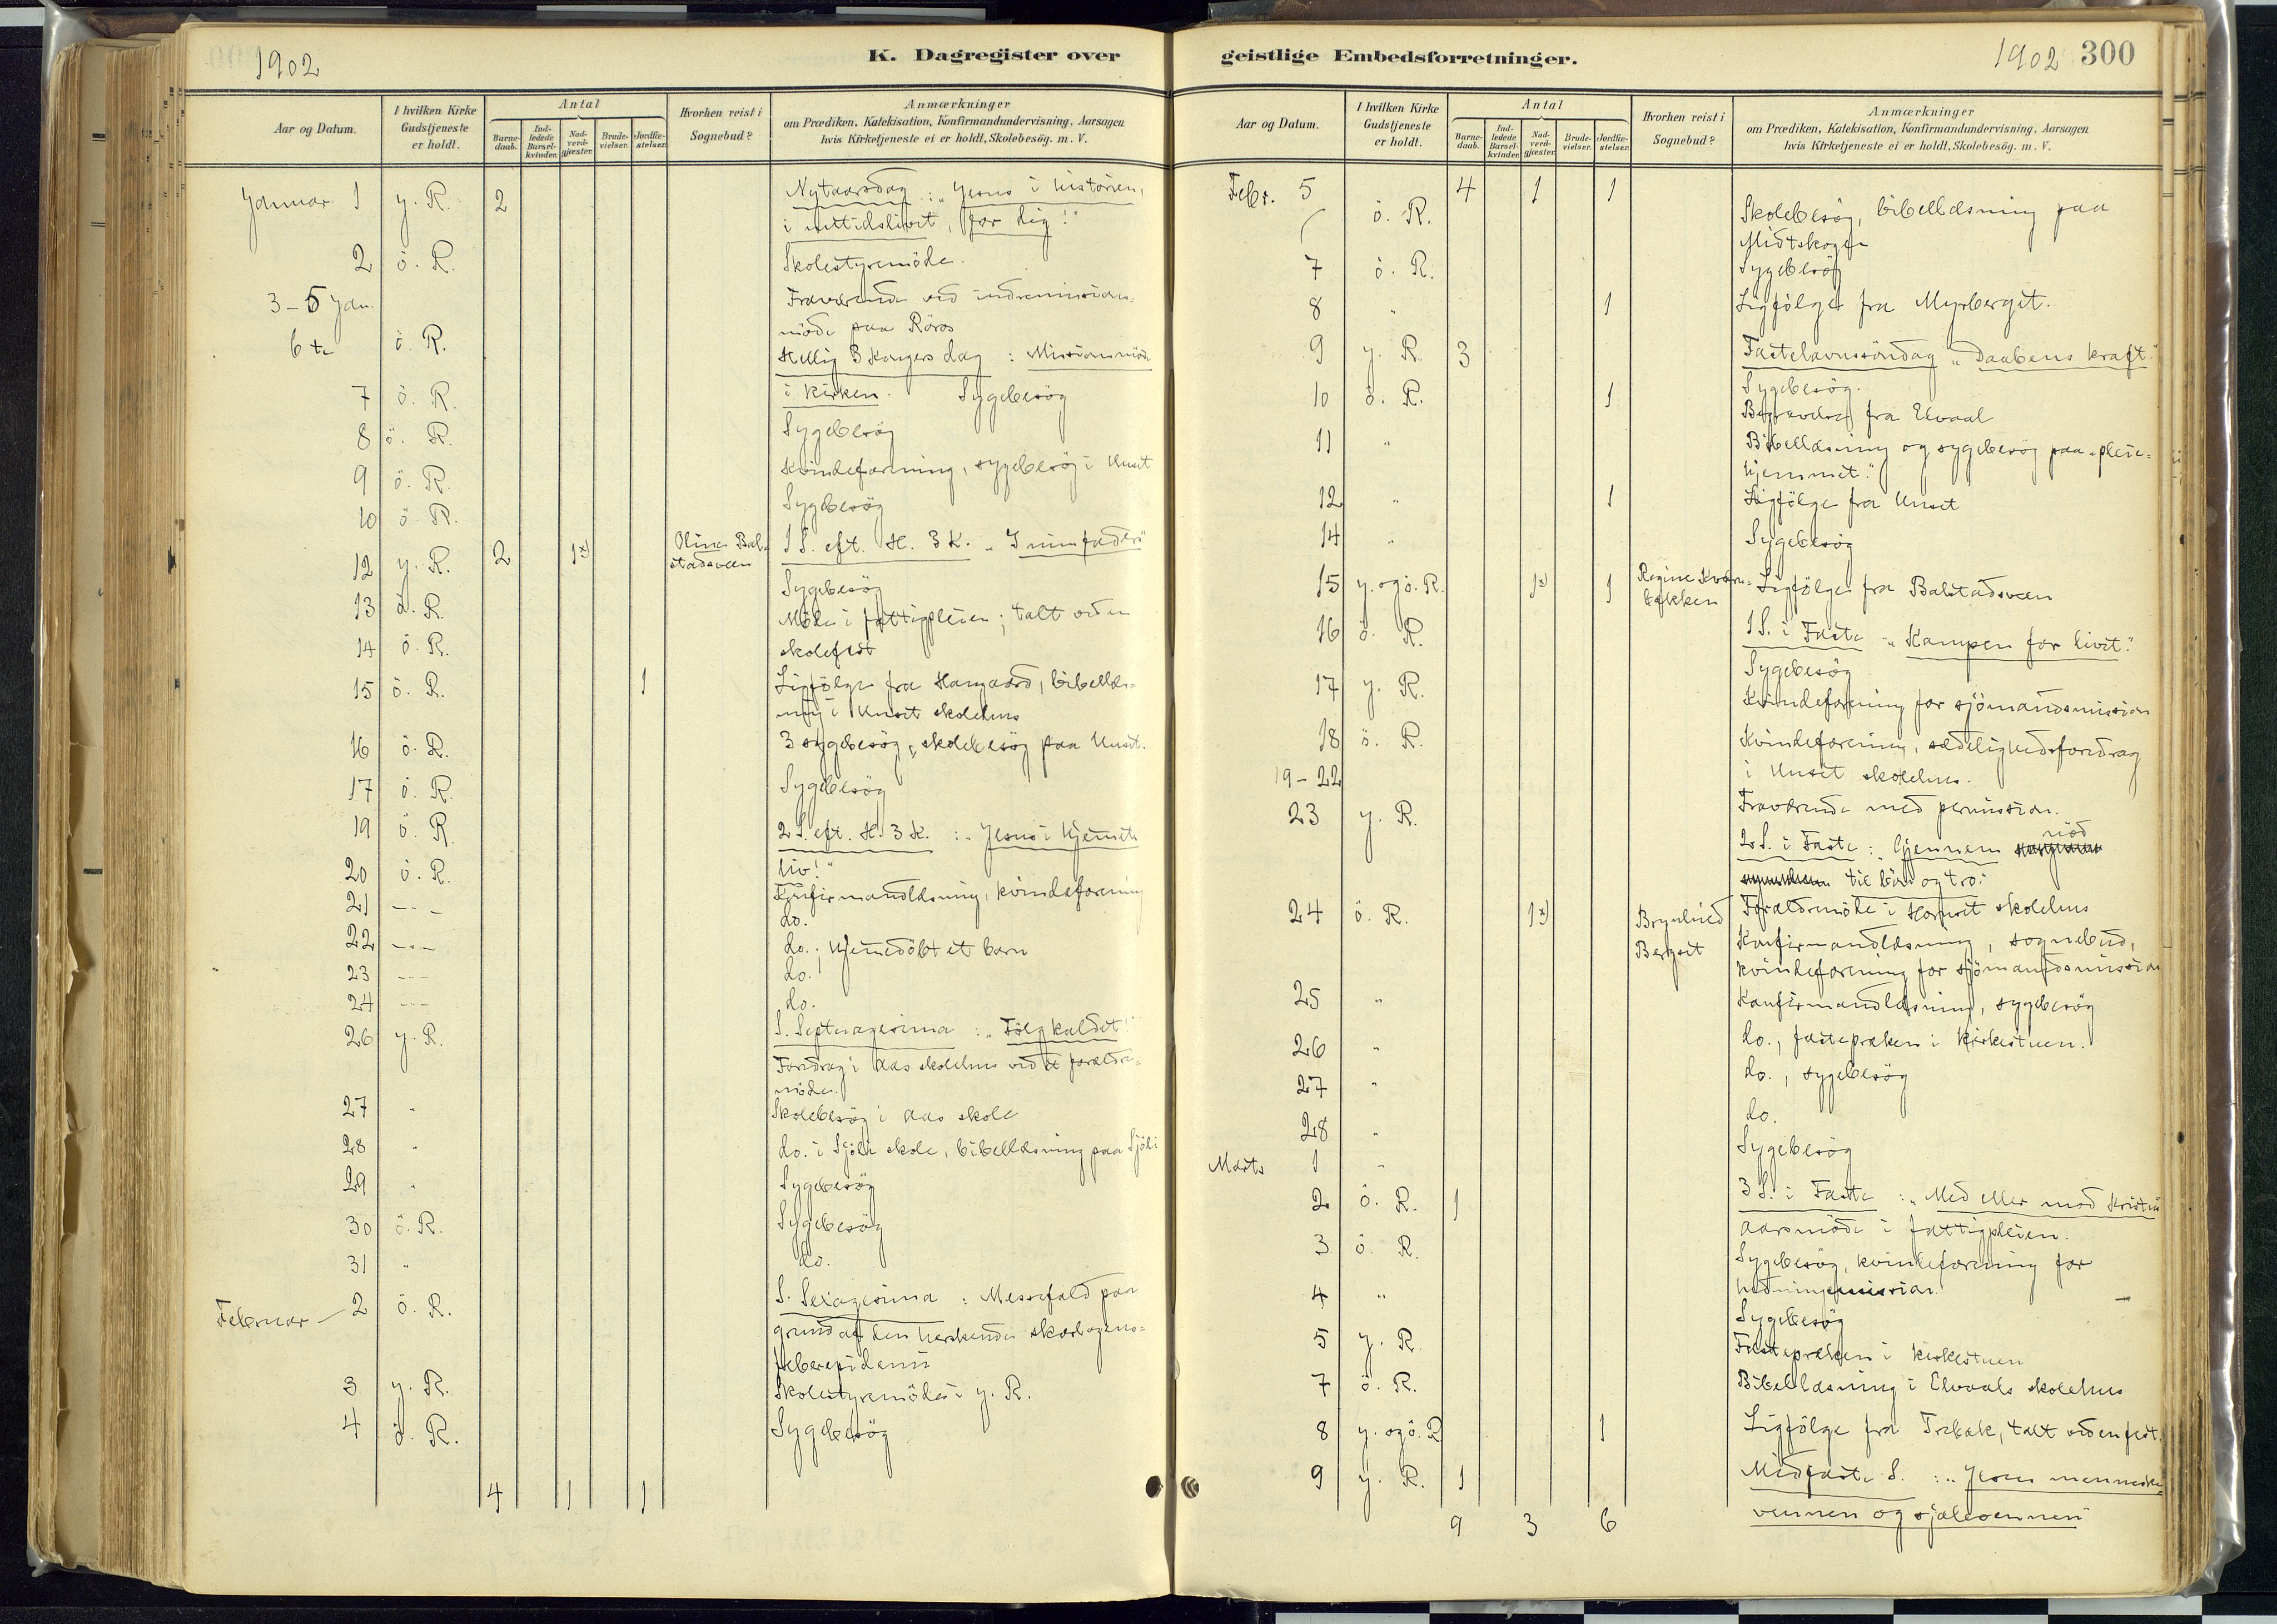 1902
K. Dagregister over
Aar og Datum.
I hvilken Kirke Gudstjeneste er holdt.
Antal
Barne-daab.
Ind-ledede Barsel-kvinder.
Nad-verd-gjæster.
Brude-vielser.
Jordfæ-stelser.
Hvorhen reist i Sognebud?
Anmærkninger
om Prædiken, Katekisation, Konfirmandundervisning, Aarsagen
hvis Kirketjeneste ei er holdt, Skolebesög. m. V.
Januar 1 y. R. 2 Nytaarsdag: "Jesus i historien,
i nutidslivet, for dig!"
2 ö. R. Skolestyremöde.
3-5 Jan. Fraværende ved indremissions-
möde paa Röros
6te ö. R. Hellig 3 Kongers dag: Missionsmöde
i kirken. Sygebesög
7 ö. R. Sygebesög
8 ö. R. Kvindeforening, sygebesög i Unset
9 ö. R. Sygebesög
10 ö. R.
12 y. R. 2 1x) Olina Bal-
stadsveen
1 S. eft. H. 3 K. "I min faders"
Sygebesög
13 ö. R. Möde i fattigpleien; talt ved en
14 ö. R. skolefest
15 ö. R. 1 Ligfölge fra Hangaard, bibellæs-
ning i Unset skolehus
16 ö. R. 3 sygebesög, skolebesög paa Unset.
17 ö. R. Sygebesög
19 ö. R. 2 S. eft. H. 3 K.: "Jesus i hjemmets
liv!"
20 ö. R. Konfirmandlæsning, kvindeforening
21 -"- do.
22 -"- do., hjemmedöbt et barn
23 -"- do.
24 -"- do.
26 y. R. S. Septuagesima: "Fölg kaldet!"
Foredrag i Aas skolehus ved et forældre-
möde.
27 " Skolebesög i Aas skole
28 " do. i Sjöli skole, bibellæsning paa Sjöli
29 " Sygebesög
30 ö. R. Sygebesög
31 " do.
Februar 2 ö. R. S. Sexagesima: Messefald paa
grund af den herskende skarlagens-
feberepidemi
3 y. R. Skolestyremöde i y. R.
4 ö. R. Sygebesög
4 1 1
geistlige Embedsforretninger.
1902 300
Aar og Datum.
I hvilken Kirke Gudstjeneste er holdt.
Antal
Barne-daab.
Ind-ledede Barsel-kvinder.
Nad-verd-gjæster.
Brude-vielser.
Jordfæ-stelser.
Hvorhen reist i Sognebud?
Anmærkninger
om Prædiken, Katekisation, Konfirmandundervisning, Aarsagen
hvis Kirketjeneste ei er holdt, Skolebesög. m. V.
Febr. 5 ö. R. 4 1 1 Skolebesög, bibellæsning paa
Midtskogen
7 ö. R. Sygebesög
8 " 1 Ligfölge fra Myrberget.
9 y. R. 3 Fastelavnssöndag "Daabens kraft."
10 ö. R. 1 Sygebesög.
Begravelse fra Elvaal
11 " Bibellæsning og sygebesög paa "pleie-
hjemmet."
12 " 1 Ligfölge fra Unset
14 " Sygebesög
15 y. og ö. R. 1x) 1 Regine Kværn-
bækken
Ligfölge fra Balstadsveen
16 ö. R. 1 S. i Faste "Kampen for livet."
Sygebesög
17 y. R. Kvindeforening for sjömandsmission
18 ö. R. Kvindeforening, sædelighedsforedrag
i Unset skolehus.
19-22 Fraværende med permission.
23 y. R. 2 S. i Faste: "Gjennem nöd
til bön og tro."
Forældremöde i Hornset skolehus
24 ö. R. 1x) Brynhild
Berget
Konfirmandlæsning, sognebud,
kvindeforening for sjömandsmission
25 " Konfirmandlæsning, sygebesög
26 " do., fastepræken i kirkestuen.
27 " do., sygebesög
28 " do.
Marts 1 " Sygebesög
2 ö. R. 1 3 S. i Faste: "Med eller mod Kristus"
3 ö. R. Aarsmöde i fattigpleien.
Sygebesög, kvindeforening for
hedningemission.
4 " Sygebesög
5 y. R. Fastepræken i kirkestuen
7 ö. R. Bibellæsning i Elvaals skolehus
8 y. og ö. R 1 Ligfölge fra Trebak, talt ved en fest.
9 y. R. 1 Midfaste S.: "Jesus menneske-
vennen og sjælevennen"
9 3 6